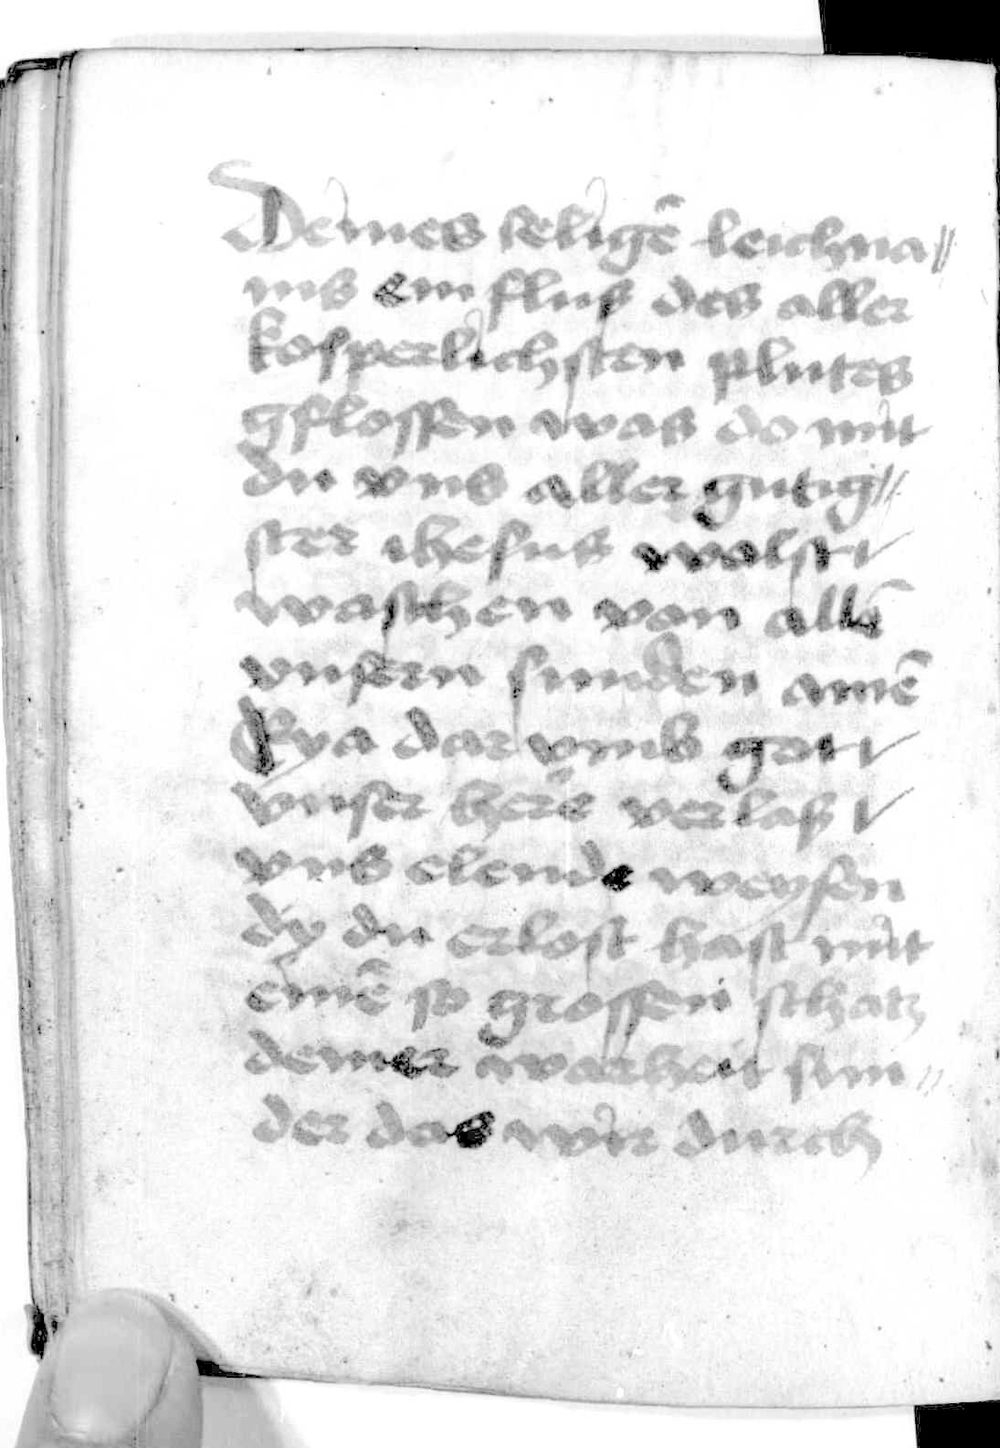 Deines seligē leichna〃
ms ein fluß des aller
kosperlichsten plutes
gflossen was do mit
du vns aller gutig〃
ster ihesus wolst
waschen von allē
vnsern sunden amē
Eya dar vmb got
vnser herre verlaß
vns elende weysen
dy du erlost hast mit
einē so grossen schatz
deiner warheit sun〃
der das wir durch